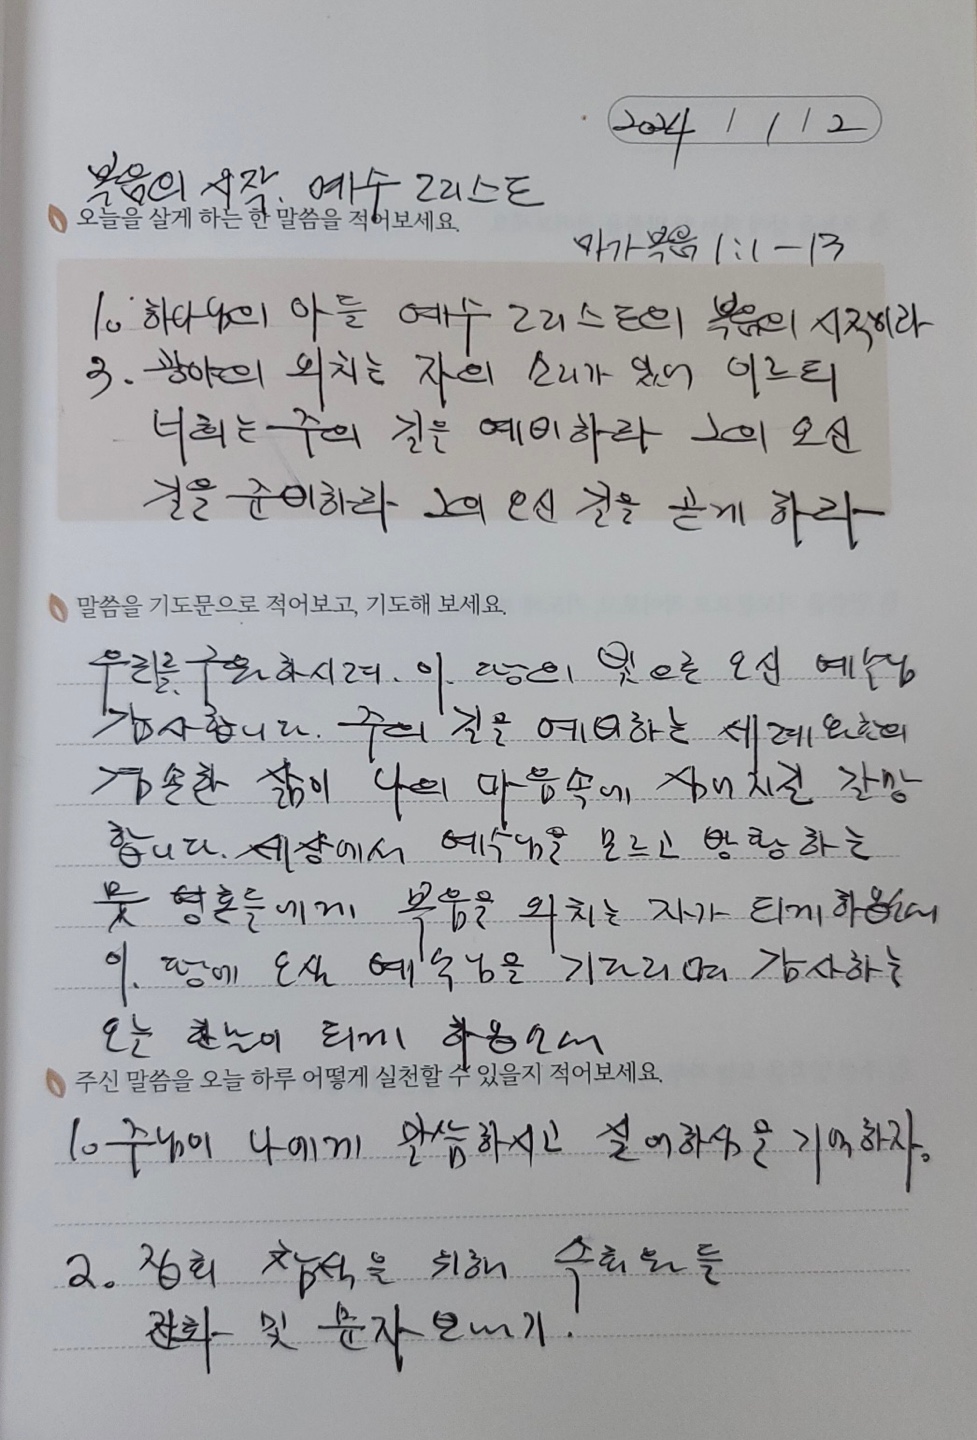 2024 / 1 / 12
복음의 시작. 예수 그리스도
오늘을 살게 하는 한 말씀을 적어보세요.
마가복음 1:1-13
1. 하나님의 아들 예수 그리스도의 복음의 시작이라
3. 광야의 외치는 자의 소리가 있어 이르되
너희는 주의 길을 예비하라 그의 오신
길을 준비하라 그의 오신 길을 곧게 하라
말씀을 기도문으로 적어보고, 기도해 보세요.
우리를 구원하시려. 이. 땅의 빛으른 오신 예수님
감사합니다. 주의 길을 예비하는 세례요한의
겸손한 삶이 나의 마음속에 길 갈망
합니다. 세상에서 예수님을 모르고 방황하는
뭇 영혼들에게 복음을 외치는 자가 되게하옵소서
이. 땅에 오실 예수님을 기다리며 감사하는
오늘 한날이 되게 하옵소서
주신 말씀을 오늘 하루 어떻게 실천할 수 있을지 적어보세요.
1. 주님이 나에게 말씀하시고 하심을 기억하자.
2. 집회 참석을 위해 수회원들
전화 및 문자보내기.